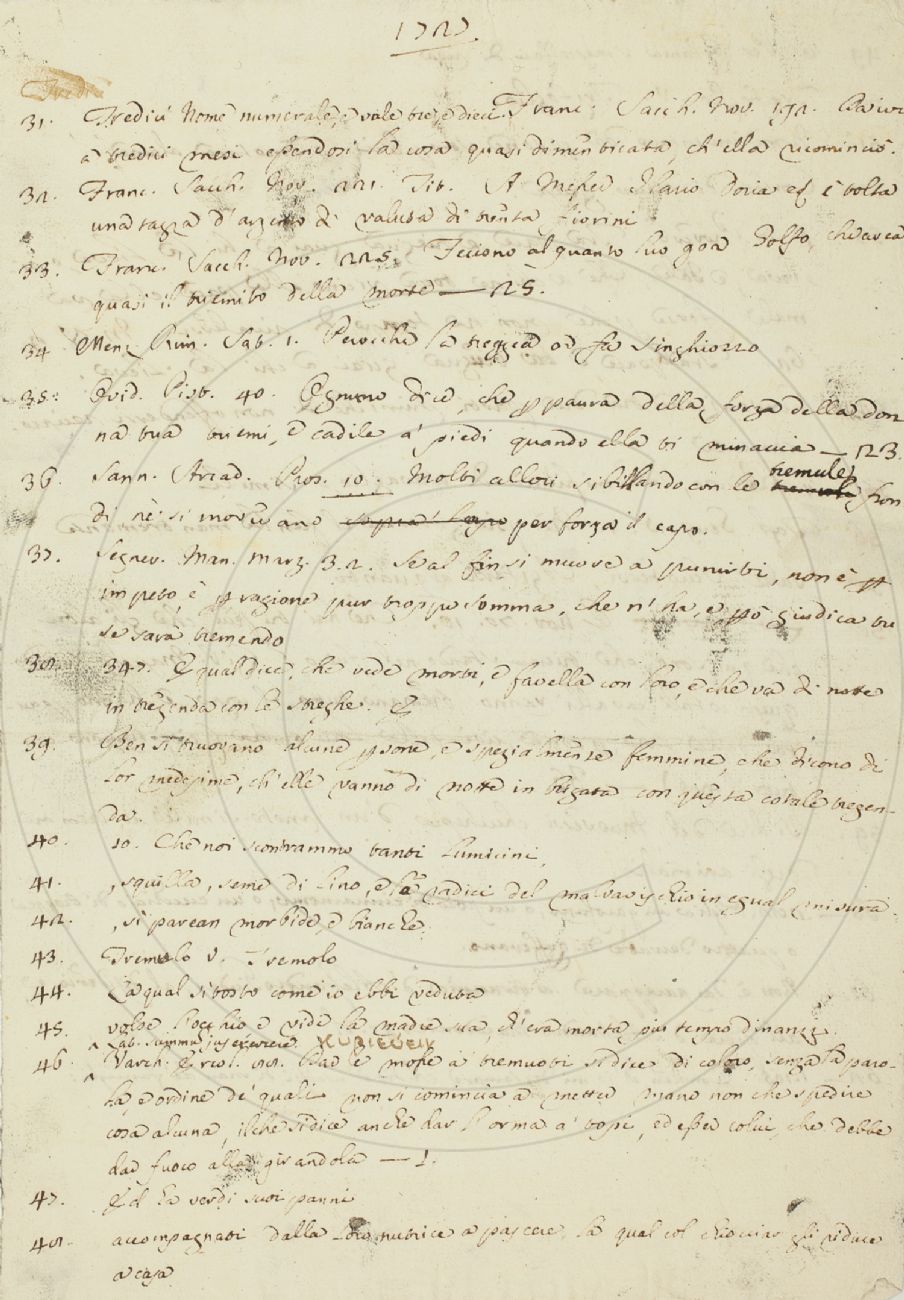 1727.
Tredi
31. Tredici Nome numerale, e vale tre, e dieci. Franc. Sacch. Nov. 192. Da ivi
a tredici mesi essendosi la cosa quasi dimenticata, ch'ella ricominciò.
32. Franc. Sacch. Nov. 221. Tit. A Messer Ilario Doria è tolta
una tazza d'argento di valuta di trenta fiorini
33. Franc. Sacch. Nov. 225. Feciono alquanto Golfo, ch'avea
quasi il tremito della morte — 25.
34 Menz. Rim. Sat. 1. Perocchè la treggea od fa singhiozzo
35. Ovid. Pist. 40. Ognuno dice, che p paura della forza della don
na tua triemi, e cadile a' piedi quando ella ti minaccia — 23.
36. Sann. Arcad. Pros. 10. Molti allori sibillando con le tremule fron
di nè si moveano per forza il capo.
37. Segner. Man. Marz. 3. 2. Se al fin si muove a punirti, non è p
impeto, è p ragione pur troppo somma, che n'ha, e pò giudica tu
se sarà tremendo
38. 347. E qual dice, che vede morti, e favella con loro, e che va di notte
in tregenda con le streghe. E
39. Ben si truovano alcune psone, e spezialmente femmine, che dicono di
lor medesime, ch'elle vanno di notte in brigata con questa cotale tregen-
da.
40. 10. Che noi scontrammo tanti lumicini,
41. , squilla, seme di lino, e la radici del malvavischio in egual misura.
42. , si parean morbide, e bianche.
43. Tremulo V. Tremolo
44. La qual sitosto come io ebbi veduta
45. volse l'occhio e vide la madre sua, ch'era morta più tempo dinanzi.
46 Varch. Ercol. 98. Dar le mosse a' tremuoti si dice di coloro, senza la paro-
la, e ordine de' quali non si comincia a metter mano non che spedire
cosa alcuna, ilche si dice anche dar l'orma a' topi, ed esser colui, che debbe
dar fuoco alla girandola — 1.
47. Ed ha verdi suoi panni
48. accompagnati dalla loro nutrice a pascere, la qual col chiocciar gli riduce
a casa